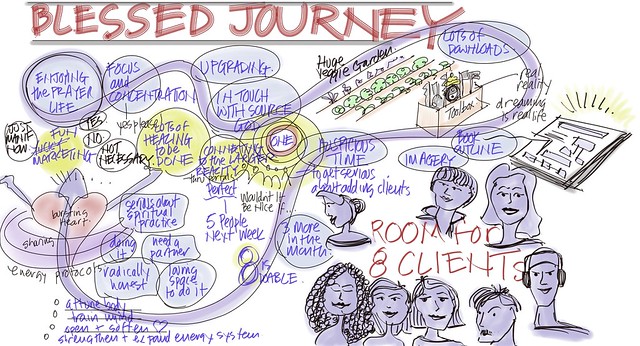 BLESSED JOURNEY
ENJOYING
THE PRAYER
LIFE
FOCUS
and
CONCENTRATION
UPGRADING
IN TOUCH
WITH SOURCE
GOD
Huge
Veggie Garden
LOTS OF
DOWNLOADS
Toolbox
real
reality
dreaming
is real life
JUST
WANT IT
NOW
FUN
LUCKY
MARKETING
YES
NO
NOT
NECESSARY
yes please
LOTS of
HEALING
to be
DONE
CONNECTING
to the LARGER
REALITY
thru portal
ONE
Perfect
5 PEOPLE
NEXT WEEK
Wouldn't It
Be Nice if...
AUSPICIOUS
TIME
to get serious
about adding clients
IMAGERY
BOOK
OUTLINE
bursting
heart
sharing
energy protocol
serious about
spiritual
practice
doing
it
need a
partner
radically
honest
laying
space
to do it
3 more
in the
month
8 IS
DOABLE
ROOM for
8 CLIENTS
attune body
train mind
open + soften
strengthen + expand energy system